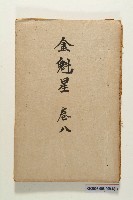 金魁星 卷八